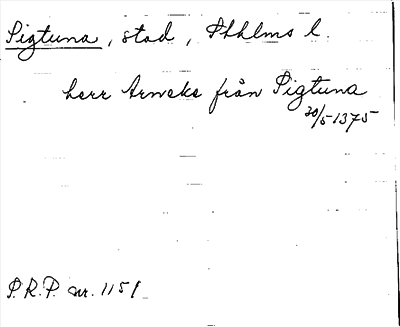 Sigtuna, stad, Sthlms l.
herr Arneke från Sigtuna
20/5 1375
S.R.P. nr. 1151